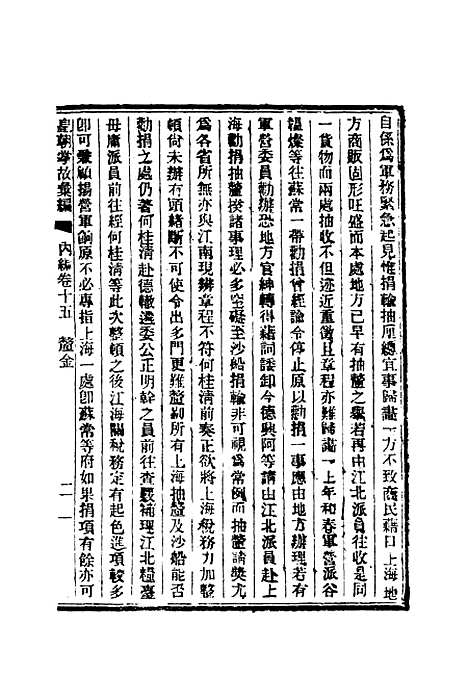 自係爲軍務緊急起見惟捐輸抽厘總宜事歸畫一方不致商民藉口上海地
方商販固形旺盛而本處地方已早有抽釐之舉若再由江北派員往收是同
一貨物而兩處抽收不但迹近重徵且章程亦難歸畫一上年和春軍營派谷
溫燦等往蘇常一帶勸捐曾經諭令停止原以勸捐一事應由地方辦理若有
軍營委員勸辦恐地方官紳轉得藉詞諉卸今德興阿等請由江北派員赴上
海勸捐抽釐揆諸事理必多窒礙至沙船捐輸非可視爲常例而抽釐請獎尤
爲各省所無亦與江南現辦章程不符何桂清前奏正欲將上海稅務力加整
頓尙未辦有頭緒斷不可使令出多門更難釐剔所有上海抽釐及沙船能否
勸捐之處仍著何桂清赴德轍遴委公正明幹之員前往查覈補理江北糧臺
毋庸派員前往經何桂清等此次整頓之後江海關稅務定有起色進項較多
卽可兼顧揚營軍餉原不必專指上海一處卽蘇常等府如果捐項有餘亦可
皇朝掌故彙編 內編卷十五 釐金 二一